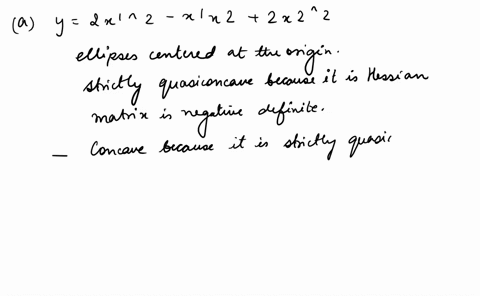 (a) y = 2x1^2 - x1x2 + 2x2^2
ellipses centered at the origin.
strictly quasiconcave because it is Hessian
matrix is negative definite.
– Concave because it is strictly quasi